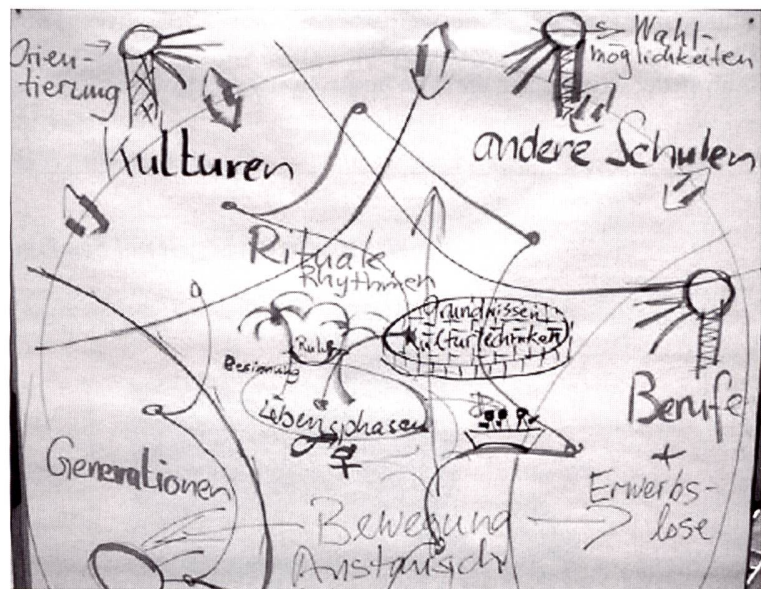 Orien-
tierung
Kulturen
Wahl-
möglichkeiten
andere Schulen
Rituale
Rhythmen
Grundwissen
Kulturtechniken
Ruhe
Besinnung
Lebensphasen
Berufe
+
Erwerbs-
lose
Generationen
Bewegung
Austausch